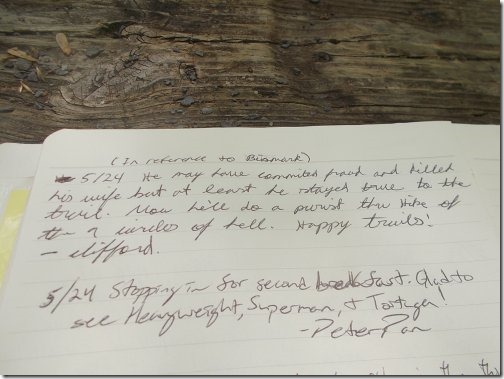 (In reference to Bismark)
5/24 He may have commited fraud and killed
his wife but at least he stayed true to the
trail. Now he'll do a purist thru hike of
the 9 circles of hell. Happy trails!
- clifford.
5/24 Stopping in for second breakfast. Glad to
see Heavyweight, Superman, & Tortuga!
-Peter Pan